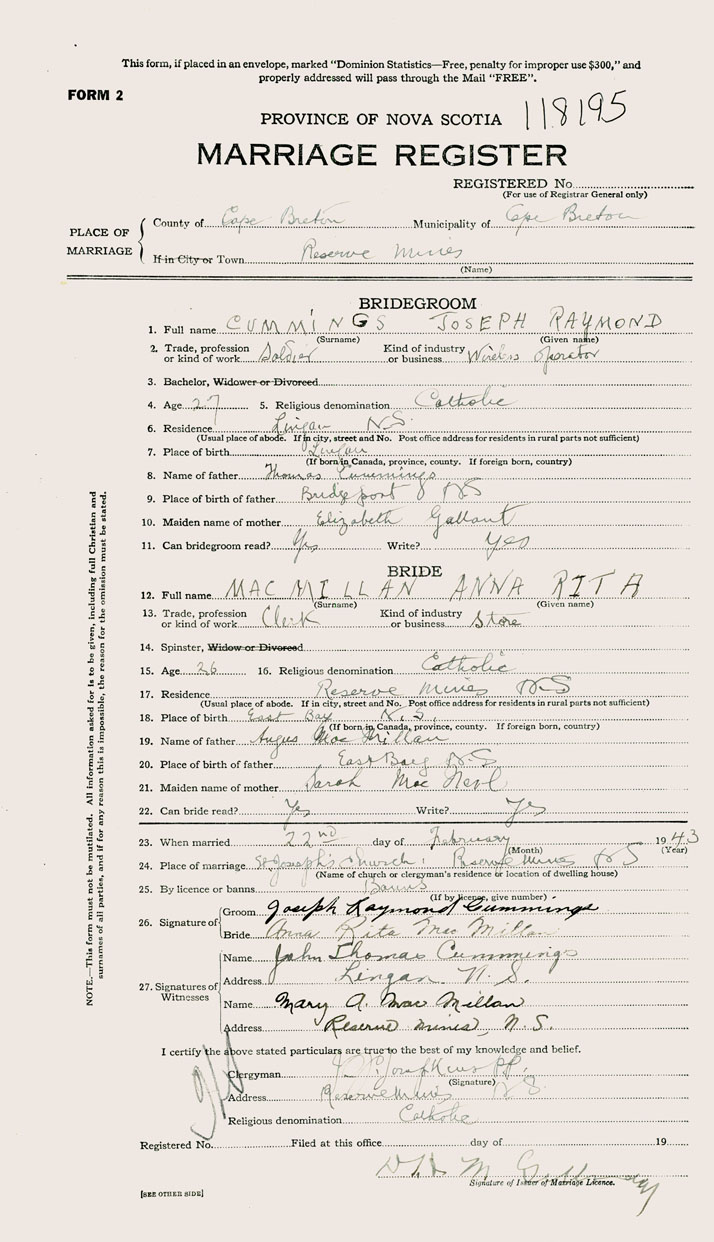 This form, if placed in an envelope, marked "Dominion Statistics—Free, penalty for improper use $300," and
properly addressed will pass through the Mail "FREE".
FORM 2
PROVINCE OF NOVA SCOTIA 118195
MARRIAGE REGISTER
REGISTERED No.
(For use of Registrar General only)
PLACE OF MARRIAGE
County of Cape Breton Municipality of Cape Breton
If in City or Town Reserve Mines
(Name)
BRIDEGROOM
1. Full name CUMMINGS JOSEPH RAYMOND
(Surname) (Given name)
2. Trade, profession or kind of work Soldier Kind of industry or business Wireless Operator
3. Bachelor, Widower or Divorced
4. Age 27 5. Religious denomination Catholic
6. Residence Lingan NS.
(Usual place of abode. If in city, street and No. Post office address for residents in rural parts not sufficient)
7. Place of birth Lingan
(If born in Canada, province, county. If foreign born, country)
8. Name of father Thomas Cummings
9. Place of birth of father Bridgeport NS
10. Maiden name of mother Elizabeth Gallant
11. Can bridegroom read? Yes Write? Yes
BRIDE
12. Full name MAC MILLAN ANNA RITA
(Surname) (Given name)
13. Trade, profession or kind of work Clerk Kind of industry or business Store
14. Spinster, Widow or Divorced
15. Age 26 16. Religious denomination Catholic
17. Residence Reserve Mines NS
(Usual place of abode. If in city, street and No. Post office address for residents in rural parts not sufficient)
18. Place of birth East Bay N.S
(If born in Canada, province, county. If foreign born, country)
19. Name of father Angus Mac Millan
20. Place of birth of father East Bay NS
21. Maiden name of mother Sarah Mac Neil
22. Can bride read? Yes Write? Yes
23. When married 22nd day of February 1943
(Month) (Year)
24. Place of marriage St. Joseph's Church: Reserve Mines NS
(Name of church or clergyman's residence or location of dwelling house)
25. By licence or banns Banns
(If by license, give number)
26. Signature of
Groom Joseph Raymond Cummings
Bride Anna Rita Mac Millan
27. Signatures of Witnesses
Name John Thomas Cummings
Address Lingan N.S.
Name Mary A. Mac Millan
Address Reserve Mines, N.S.
I certify the above stated particulars are true to the best of my knowledge and belief.
Clergyman P.P.
(Signature)
Address Reserve Mines NS.
Religious denomination Catholic
Registered No. Filed at this office day of 19
Signature of Issuer of Marriage Licence.
[SEE OTHER SIDE]
NOTE.—This form must not be mutilated. All information asked for is to be given, including full Christian and
surnames of all parties, and if for any reason this is impossible, the reason for the omission must be stated.